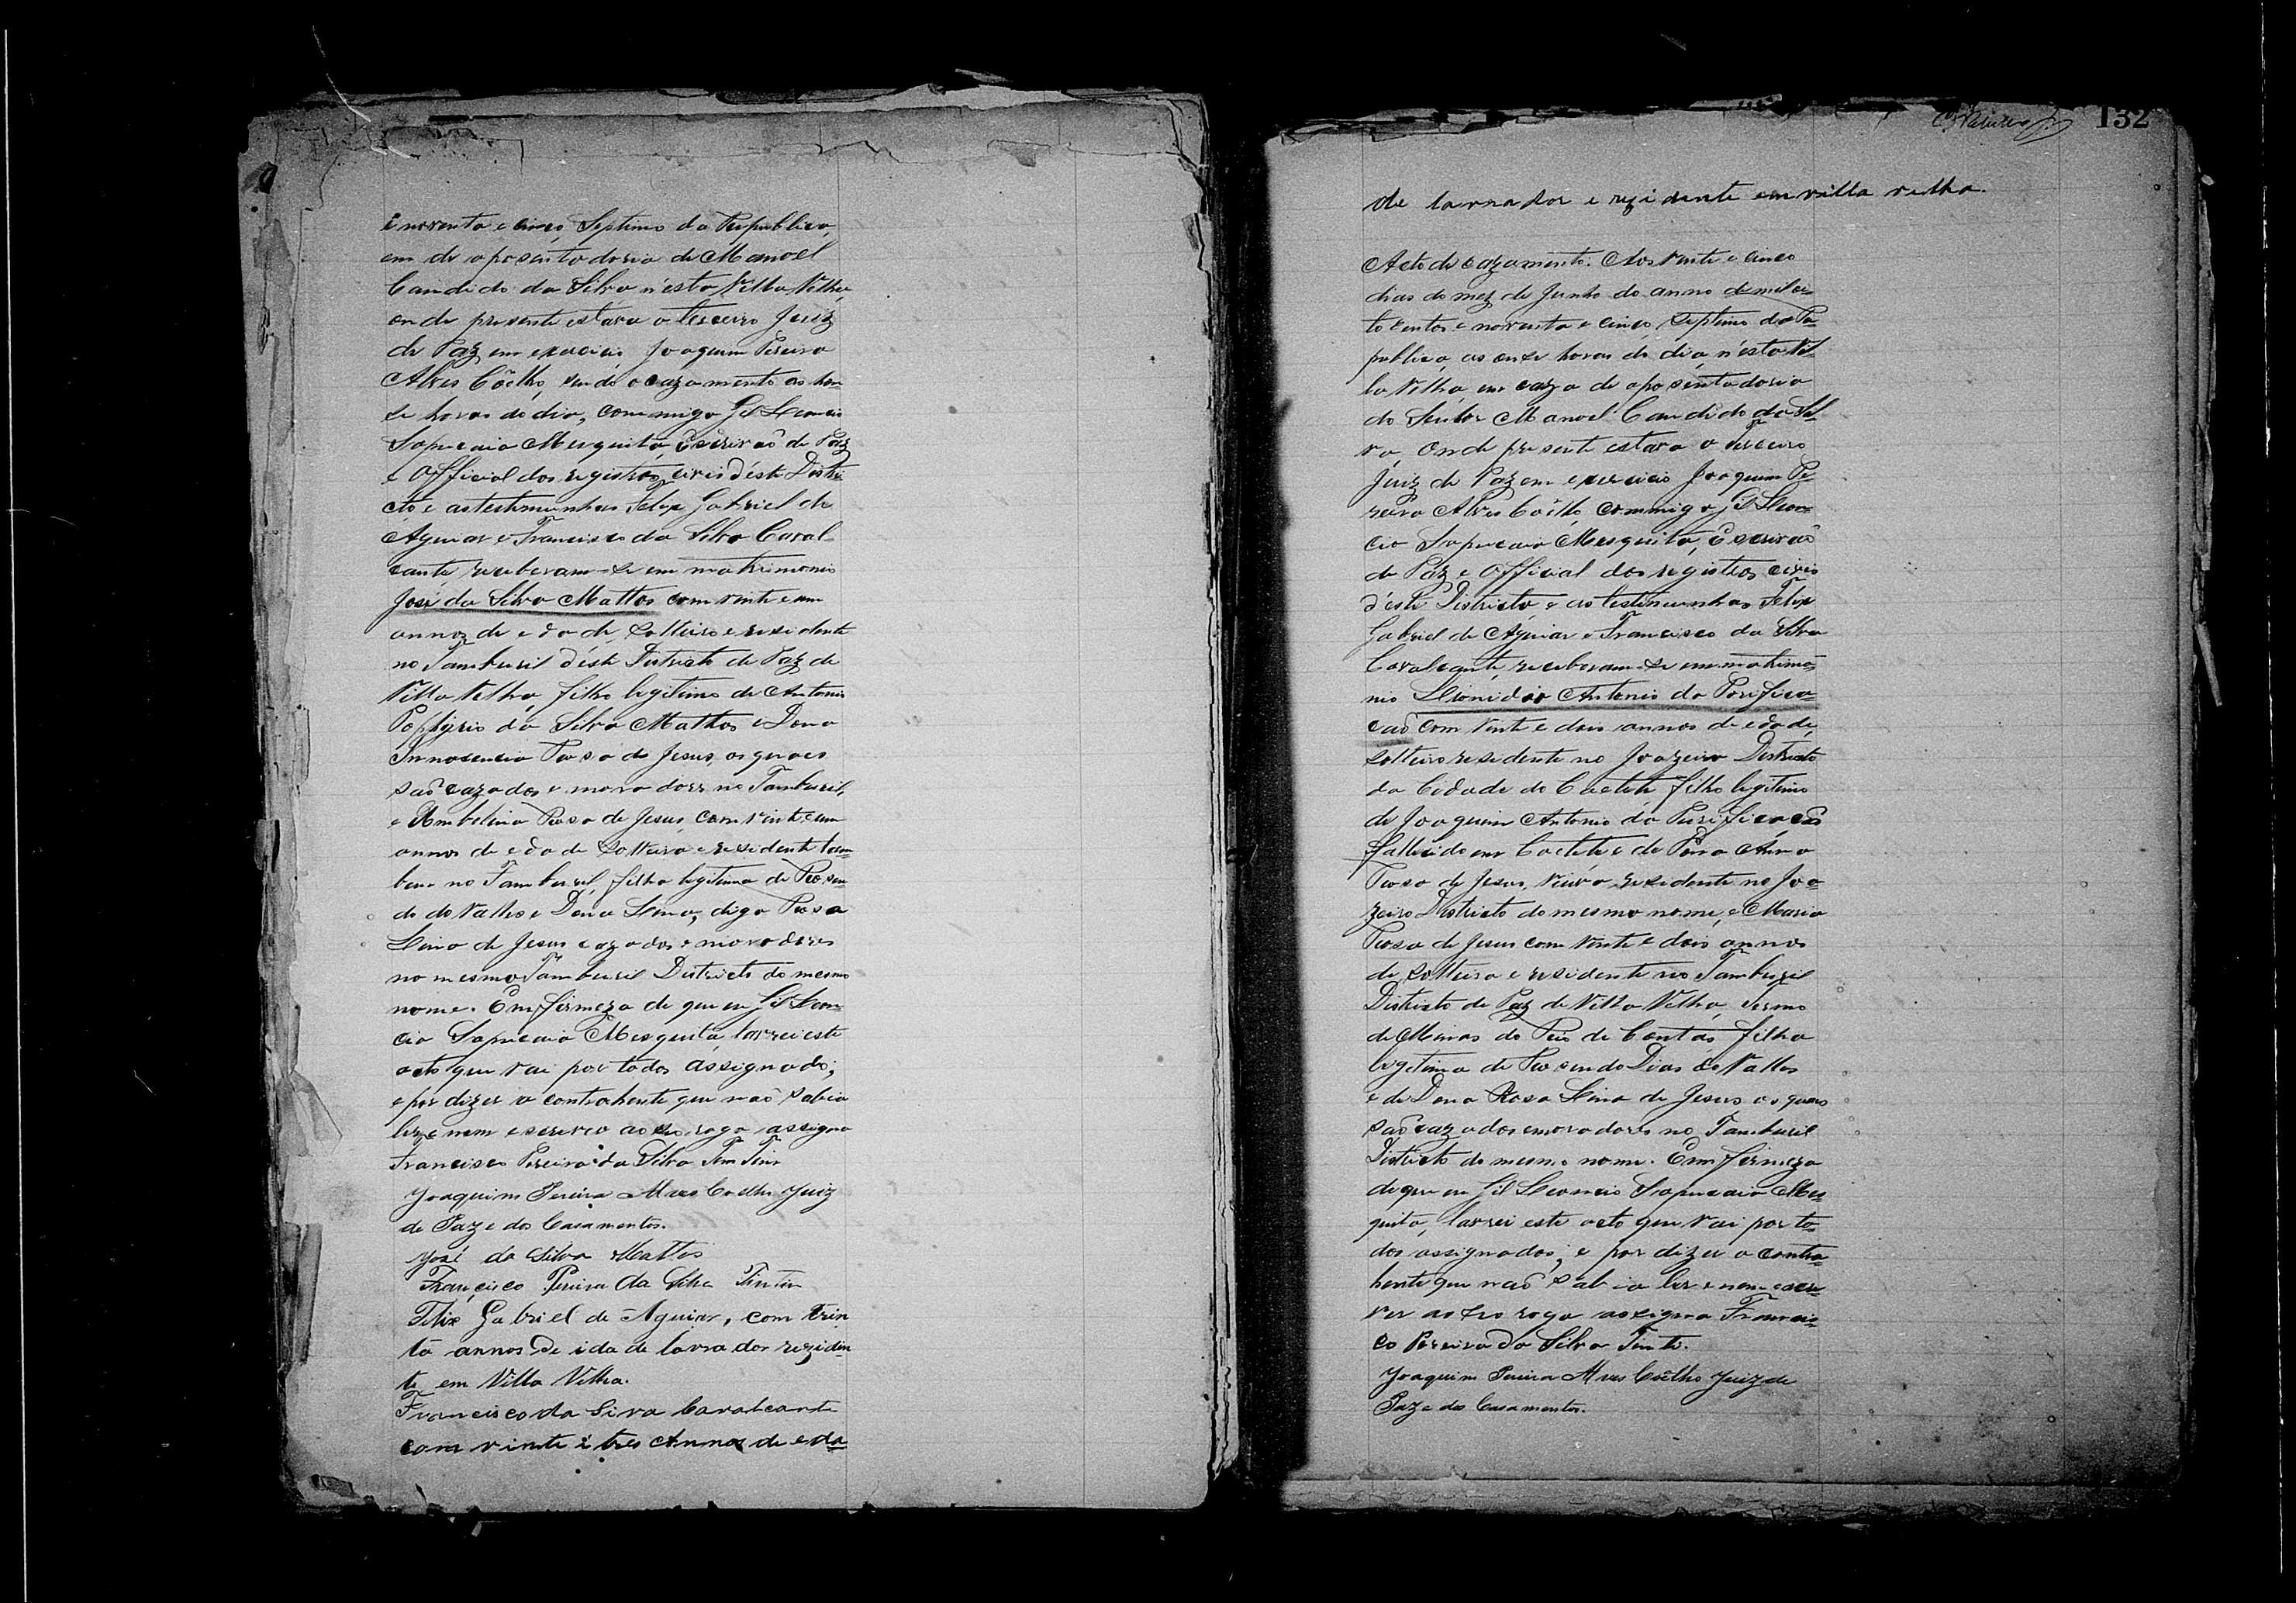 e noventa e cinco, Septimo da Republica,
em de aposentadoria de Manoel
Candido da Silva n'esta Villa Velha,
onde presente estava o terceiro Juiz
de Paz em exercicio Joaquim Pereira
Alves Coêlho, sendo o cazamento as hon
se horas do dia, commigo Gil Leoncio
Sapucaia Mesquita, Escrivaõ de Paz
e Official dos registros civis d'este Distri
cto e as testemunhas Felix Gabriel de
Aguiar e Francisco da Silva Caval
cante, receberam-se em matrimonio
José da Silva Mattos com vinte e um
annos de edade, solteiro e residente
no Tamburil d'este Districto de Paz de
Villa Velha, filho legitimo de Antonio
da Silva Mattos e Dona
Innocencia Rosa de Jesus, os quaes
saõ cazados e moradores no Tamburil,
e Umbelina Rosa de Jesus, com vinte e um
annos de edade solteira e residente tam
bem no Tamburil, filha legitima de Rosen
do do Valles e Dona Lina, digo Rosa
Lina de Jesus cazados e moradores
no mesmo Tamburil Districto do mesmo
nome. Em firmeza de que eu Gil Leon
cio Sapucaia Mesquita, lavrei este
acto que vai por todos assignado;
e por dizer a contrahente que naõ sabia
ler e nem escrever ao seo rogo assigna
Francisco Pereira da Silva Tim Tim
Joaquim Pereira Alves Coelho Juiz
de Paz e dos Casamentos.
José da Silva Mattos
Francisco Pereira da Silva Tintim
Felix Gabriel de Aguiar, com trin
ta annos de idade lavrador reziden
te em Villa Velha.
Francisco da Siva Cavalcante
com vinte e tres Annos de eda
132
de lavrador e rezidente em villa velha.
Acto de cazamento. Aos vinte e cinco
dias do mez de Junho do anno de mil oi-
to centos e noventa e cinco, Septimo da Re-
publica, as onze horas do dia, n'esta Vil-
la Velha, em caza de aposentadoria
do Senhor Manoel Candido da Sil-
va, onde presente estava o Terceiro
Juiz de Paz em exercicio Joaquim Pe-
reira Alves Coêlho, commigo Gil Leon-
cio Sapucaia Mesquita, Escrivaõ
de Paz e Official dos registros civis
d'este Districto, e as testemunhas Felix
Gabriel de Aguiar e Francisco da Silva
Cavalcante, receberam-se em matrimo-
nio Leonidio Antonio da Purifica-
caõ com vinte e dois annos de edade,
solteiro residente no Joazeiro Districto
da Cidade do Caeteté filho legitimo
de Joaquim Antonio da Purificacaõ
fallecido em Caeteté e de Dona Anna
Rosa de Jesus, viuva residente no Joa-
zeiro Districto do mesmo nome, e Maria
Rosa de Jesus com vinte e dois annos
de solteira e residente no Tamburil
Districto de Paz de Villa Velha, Termo
de Minas do Rio de Contas, filha
legitima de Rosendo Dias do Valles
e de Dona Rosa Lina de Jesus os quaes
saõ cazados e moradores no Tamburil
Districto do mesmo nome. Em firmeza
de que eu Gil Leoncio Sapucaia Mes-
quita, lavrei este acto que vai por to-
dos assignados; e por dizer a contra-
hente que naõ sabia ler e nem escre-
ver ao seo rogo assigna Francis-
co Pereira da Silva Tinti.
Joaquim Pereira Alves Coêlho Juiz de
Paz e dos Casamentos.